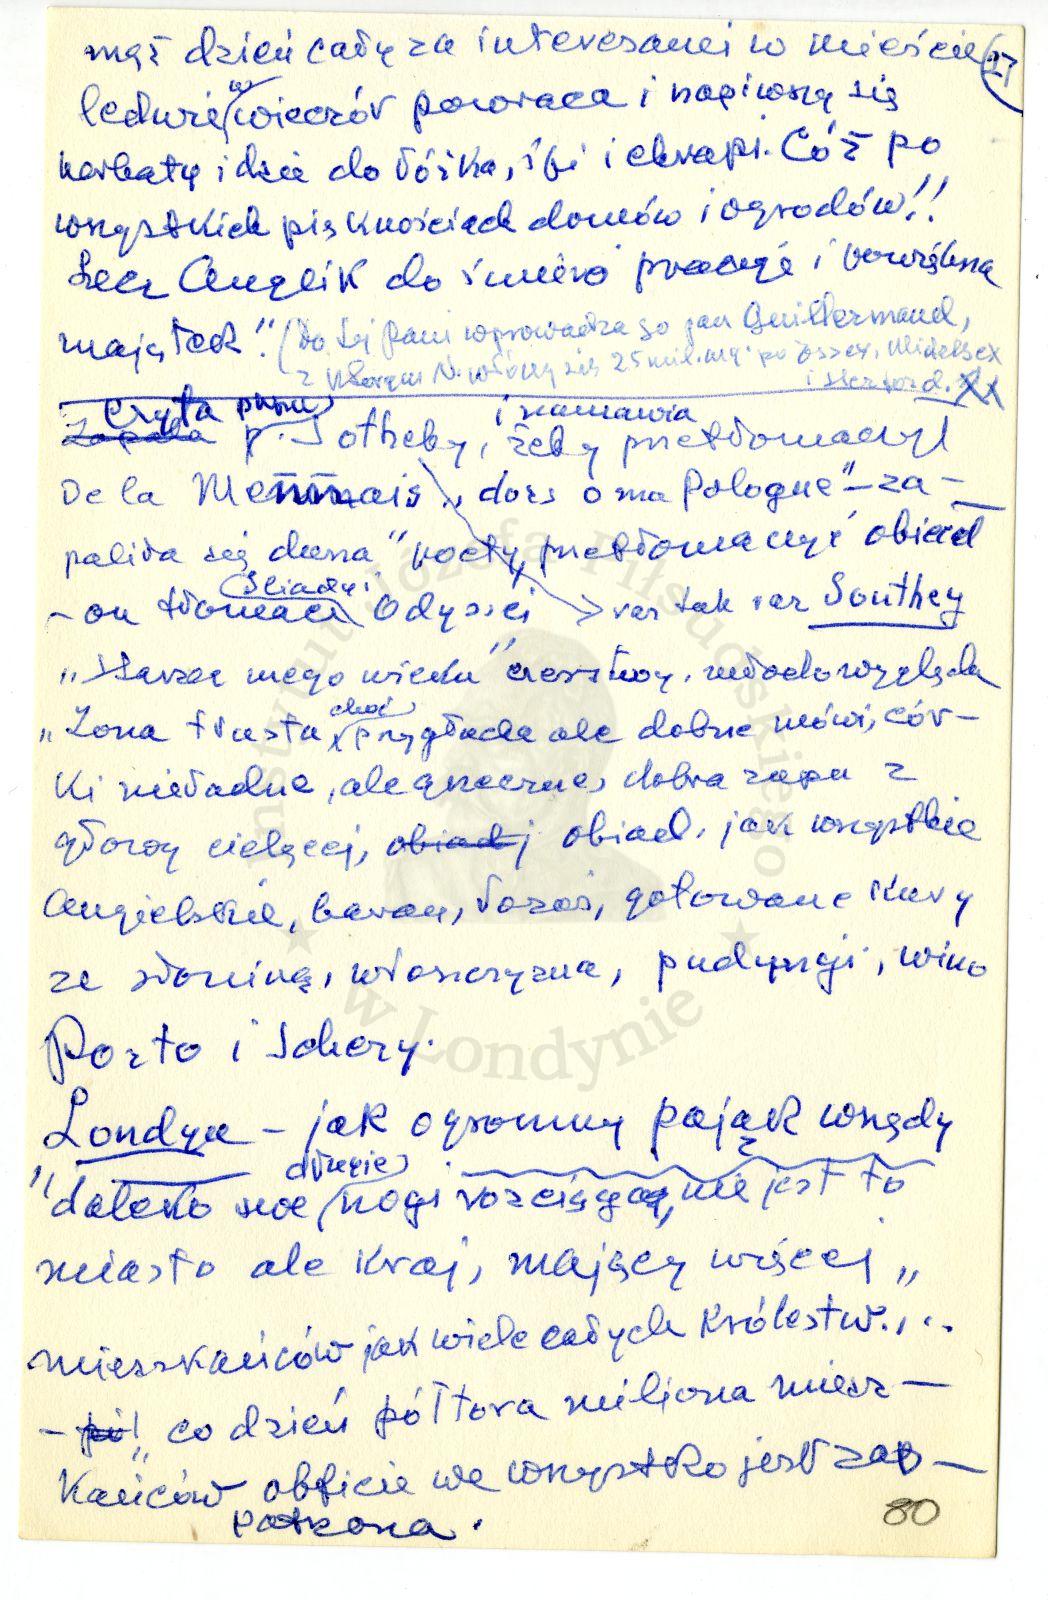 27
mąż dzień cały za interesami w mieście
ledwie w wieczór powraca i napiwszy się
herbaty idzie do łóżka, śpi i chrapi. Cóż po
wszystkich pięknościach domów i ogrodów!!
Lecz Anglik do śmierci pracuje i powiększa
majątek." (Do tej pani wprowadza go pan Guillermand,
z którym N. włóczy się 25 mil. ang. po Essex, Midelsex
i Hertford.
czyta pismo i namawia
Zapała p. Sotheby, żeby przetłomaczył
De la Mennais, "dors o ma Pologne" – za-
paliła się dusza "poety, przetłomaczyć obiecał
– on tłomacz Iliady i Odysei
raz tak raz Southey
"Starzec mego wieku" czerstwy, młodo wygląda
"Żona tłusta, choć przygłucha ale dobrze mówi, cór-
ki nieładne, ale grzeczne, dobra zupa z
głowy cielęcej, obiady obiad, jak wszystkie
Angielskie, baran, łosoś, gotowane kury
ze słoniną, włoszczyzna, pudyngi, wino
Porto i Schery.
Londyn – jak ogromny pająk wszędy
"daleko swe długie nogi rozciąga, nie jest to
miasto ale kraj, mający więcej "
mieszkańców jak wiele całych Królestw...
– pi! "co dzień półtora miliona miesz-
kańców obficie we wszystko jest zao-
patrzona.
80
Instytut Józefa Piłsudskiego
w Londynie